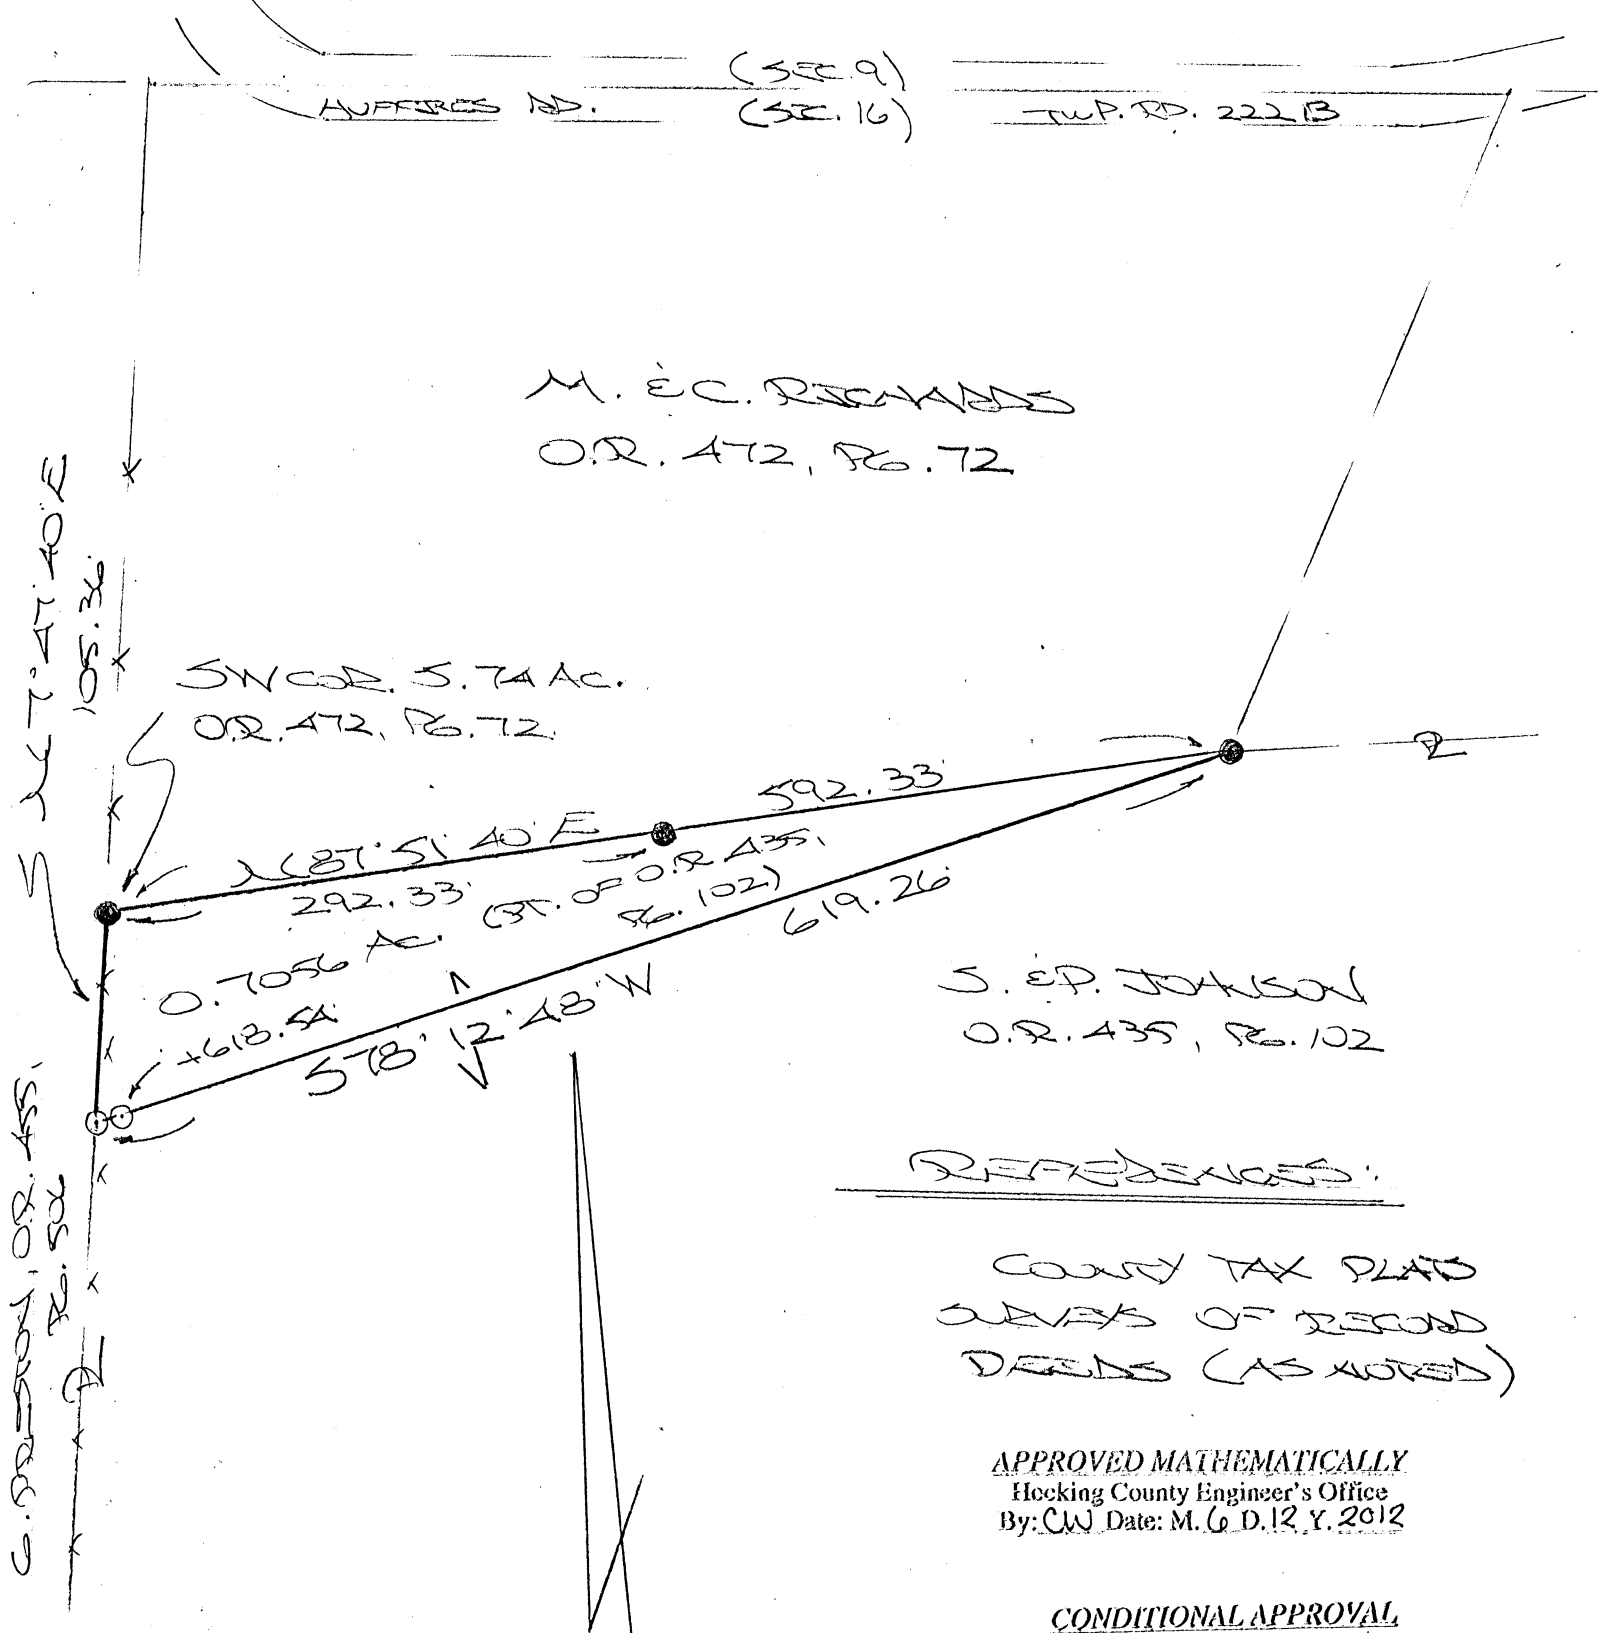 (SEC. 9)
HUFFINES RD. (SEC. 16) TWP. RD. 222 B
M. & C. RICHARDS
O.R. 472, PG. 72
N 7° 47' 40" E
105.36'
SW COR. 5.74 AC.
O.R. 472, PG. 72
592.33'
N 87° 51' 40" E
292.33'
(PT. OF O.R. 435,
PG. 102)
0.7056 AC.
619.26'
+618.54'
S 78° 12' 48" W
S. & P. JOHNSON
O.R. 435, PG. 102
G. PRESTON, O.R. 455,
PG. 506
PL
PL
REFERENCES:
COUNTY TAX PLATS
SURVEYS OF RECORD
DEEDS (AS NOTED)
APPROVED MATHEMATICALLY
Hocking County Engineer's Office
By: CW Date: M. 6 D. 12 Y. 2012
CONDITIONAL APPROVAL